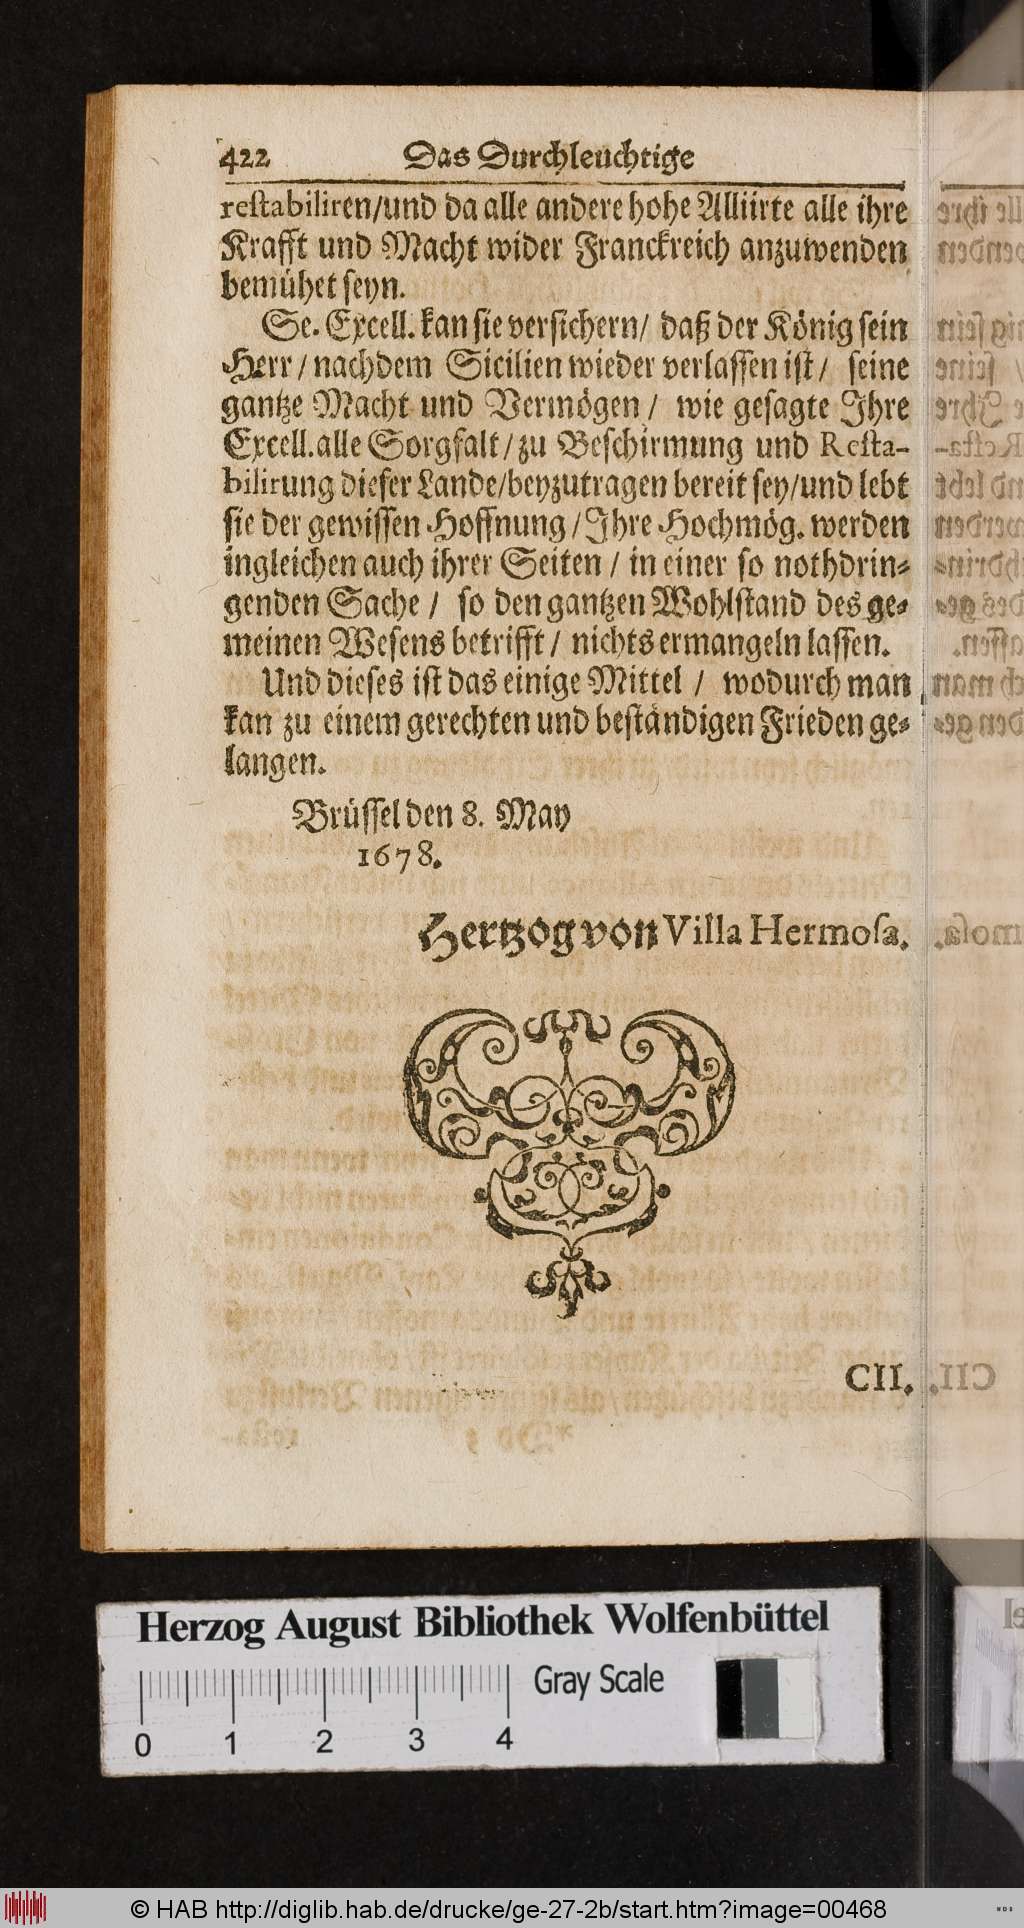 422 Das Durchleuchtige
restabiliren/und da alle andere hohe Alliirte alle ihre
Krafft und Macht wider Franckreich anzuwenden
bemühet seyn.
Se. Excell. kan sie versichern/ daß der König sein
Herr / nachdem Sicilien wieder verlassen ist / seine
gantze Macht und Vermögen / wie gesagte Ihre
Excell. alle Sorgfalt / zu Beschirmung und Resta-
bilirung dieser Lande/beyzutragen bereit sey/und lebt
sie der gewissen Hoffnung / Ihre Hochmög. werden
ingleichen auch ihrer Seiten / in einer so nothdrin-
genden Sache / so den gantzen Wohlstand des ge-
meinen Wesens betrifft / nichts ermangeln lassen.
Und dieses ist das einige Mittel / wodurch man
kan zu einem gerechten und beständigen Frieden ge-
langen.
Brüssel den 8. May
1678.
Hertzog von Villa Hermosa.
CII.
Herzog August Bibliothek Wolfenbüttel
Gray Scale
0 1 2 3 4
© HAB http://diglib.hab.de/drucke/ge-27-2b/start.htm?image=00468